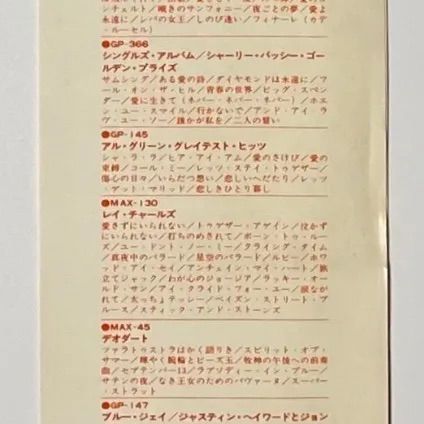 シェルト／囁きのサンフォニー／夜ごとの夢／愛よ
永遠に／レバの女王／しのび逢い／フィナーレ（カデ
・ルーセル）
●GP-366
シングルズ・アルバム／シャーリー・バッシー・ゴー
ルデン・プライズ
サムシング／ある愛の詩／ダイヤモンドは永遠に／フ
ール・オン・ザ・ヒル／青春の世界／ビッグ・スペン
ダー／愛に生きて（ネバー・ネバー・ネバー）／ホエ
ン・ユー・スマイル／行かないで／アンド・アイ・ラ
ヴ・ユー・ソー／誰かが私を／二人の誓い
●GP-145
アル・グリーン・グレイテスト・ヒッツ
シャ・ラ・ラ／ヒア・アイ・アム／愛のさけび／愛の
束縛／コール・ミー／レッツ・ステイ・トゥゲザー／
傷心の日々／いらだつ想い／悲しいへだたり／レッツ
・ゲット・マリッド／悲しきひとり暮し
●MAX-130
レイ・チャールズ
愛さずにいられない／トゥゲザー・アゲイン／泣かず
にいられない／打ちのめされて／ボーン・トゥ・ルー
ズ／ユー・ドント・ノー・ミー／クライング・タイム
／真夜中のバラード／星空のバラード／ルビー／ホワ
ッド・アイ・セイ／アンチェイン・マイ・ハート／旅
立てジャック／わが心のジョージア／ラッキー・オー
ルド・サン／アイ・クライド・フォー・ユー／涙なが
れて／太っちょテッシー／ベイズン・ストリート・ブ
ルース／スティック・アンド・ストーンズ
●MAX-45
デオダート
ツァラトゥストラはかく語りき／スピリット・オブ・
サマー／輝く腕輪とビーズ玉／牧神の午後への前奏
曲／セプテンバー13／ラプソディー・イン・ブルー／
サテンの夜／なき王女のためのパヴァーヌ／スーパー
・ストラット
●GP-147
ブルー・ジェイ／ジャスティン・ヘイワードとジョン